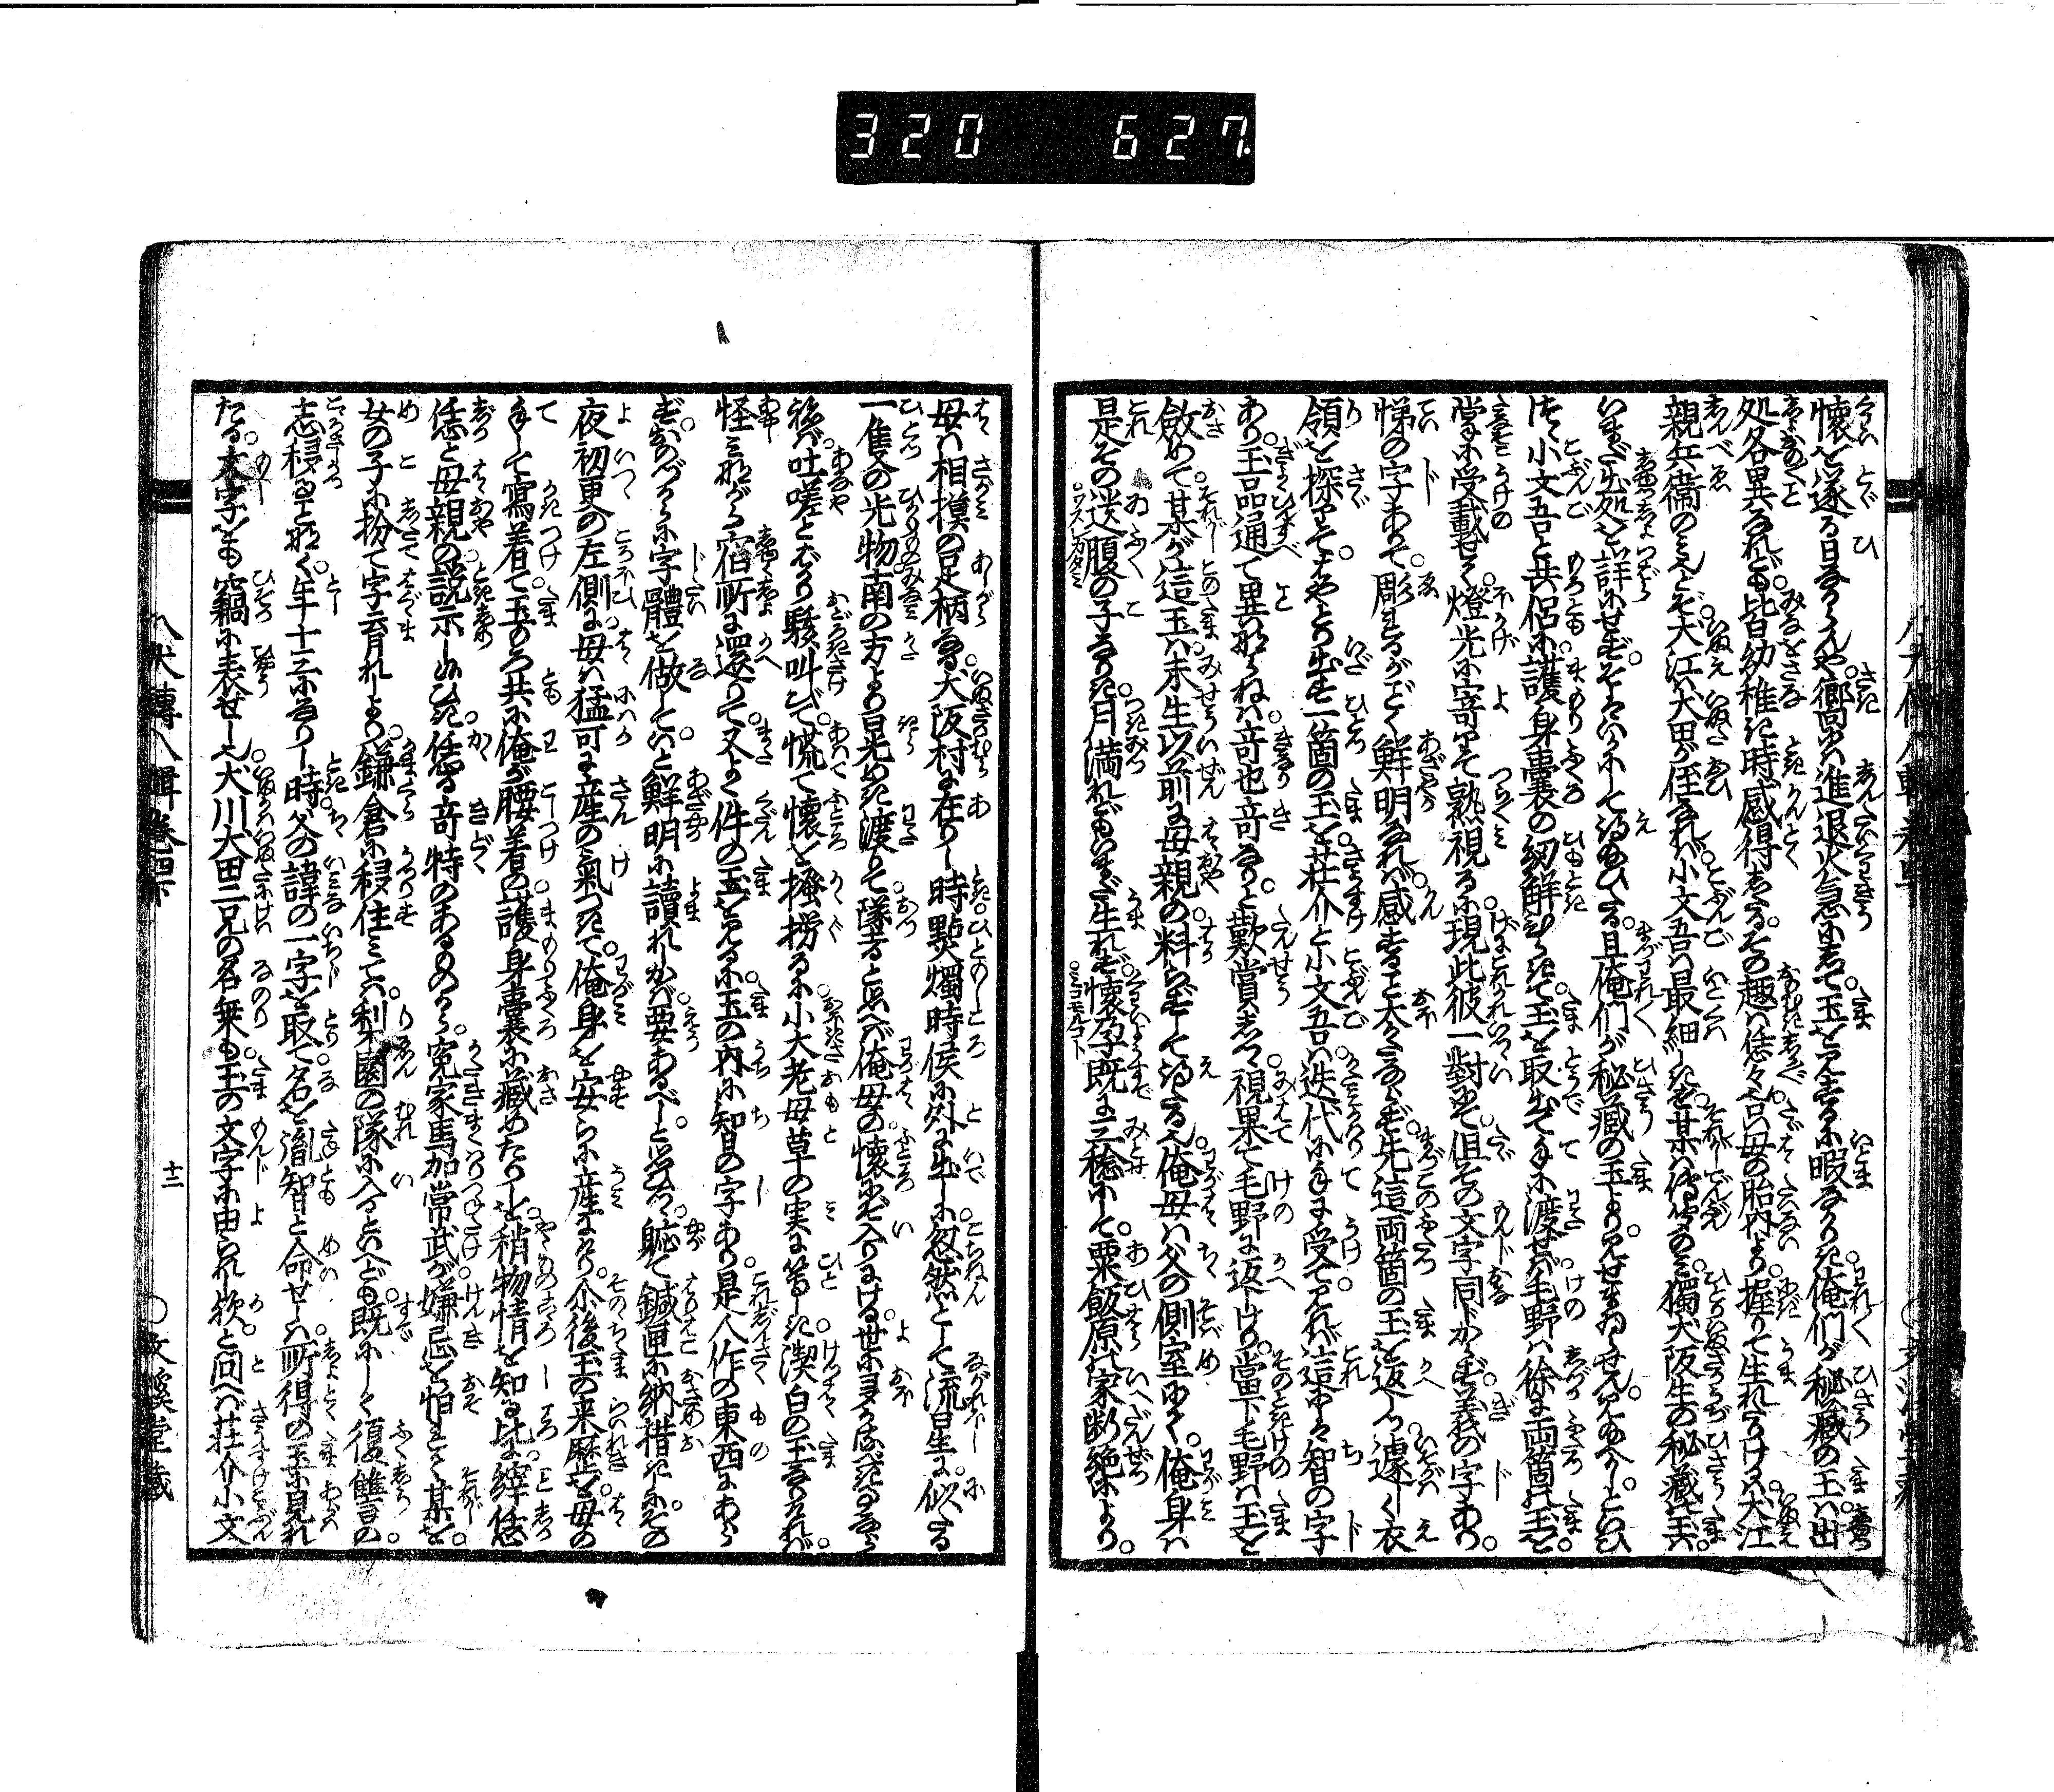 320 627
懐を遂る日あらんや。嚮には進退火急にして。玉を見するに暇なりき。俺們が秘藏の玉は出
処各異なれども。皆幼稚き時感得したる。その趣は恁々。言母の胎内より。握りて生れたりけるは犬江
親兵衛のみ。犬江犬田が侄なれば。小文吾は最細しきを。某は傳聞のみ。獨犬阪生の秘藏の玉は。
いまだ出処を詳にせず。そはいかにして得給ひたる。且俺們が秘藏の玉より。見せまゐらせん。見給へかし。といひ
つゝ小文吾と共侶に。護身嚢の紐觧ひらきて。玉を取出て手に渡せば。毛野は徐に両箇の玉を。
掌に受載せて。燈光に寄りて熟視るに。現此彼一對にて。但その文字同じからず。義の字あり。
悌の字ありて。彫れるがごとく鮮明なれば。感ずること大かたならず。先這両箇の玉を返しつ。遽しく衣
領を探りて。はやとり出す一箇の玉を。荘介と小文吾は。迭代に手に受て見れば。這は是智の字
あり。玉品通て異ならねば。奇也奇なりと歎賞しつゝ。視果て毛野に返しけり。當下毛野は玉を
斂めて。某が這玉は。未生以前に母親の料らずして得たる也。俺母は父の側室にて。俺身は
是その遺腹の子なりき。月満れどもいまだ生れず。懐孕既に三稔にして。粟飯原の家断絶により。
母は相摸の足柄なる。犬阪村に在りし時。㸃燭時候に外に出しに。忽然として流星に似たる
一隻の光物。南の方より晃めき渡りて。隊ると思へば俺母の懐に入りにける。世に多かるべきことなら
ねば。吐嗟とばかり駭叫びて。慌て懐を掻撈るに。小大老母草の実に等しき。潔白の玉なりければ。
怪みながら宿所に還りて。又よく件の玉を見るに。玉の内に智の字あり。是人作の東西にあら
ず。おのづからに字體を做して。いと鮮明に讀れしかば。要あるべしと思ひつゝ。軈て鍼匣に納措きに。その
夜初更の左側に。母は猛可に産の氣つきて。俺身を安らかに産にけり。尒後玉の来歴を。母の
手して寫着て。玉もろ共に俺が腰着の。護身嚢に藏めたりしを。稍物情を知る比に。縡恁
恁と母親の。説示し給ひき。恁る奇特のあるものから。寃家馬加常武が。嫌忌を怕れて。某を。
女の子に扮て字育れしより。鎌倉に移住みては。利園の隊に入るといへども。既にして復讐の
志移ることなく。年十三になりし時。父の諱の一字を取て。名を胤智と命せしは。所得の玉に見れ
たる。文字をも竊に表せし也。犬川犬田二兄の名乗も。玉の文字に由られし歟。と問へば荘介小文
八犬傳八輯巻四下
十二
○文溪堂藏